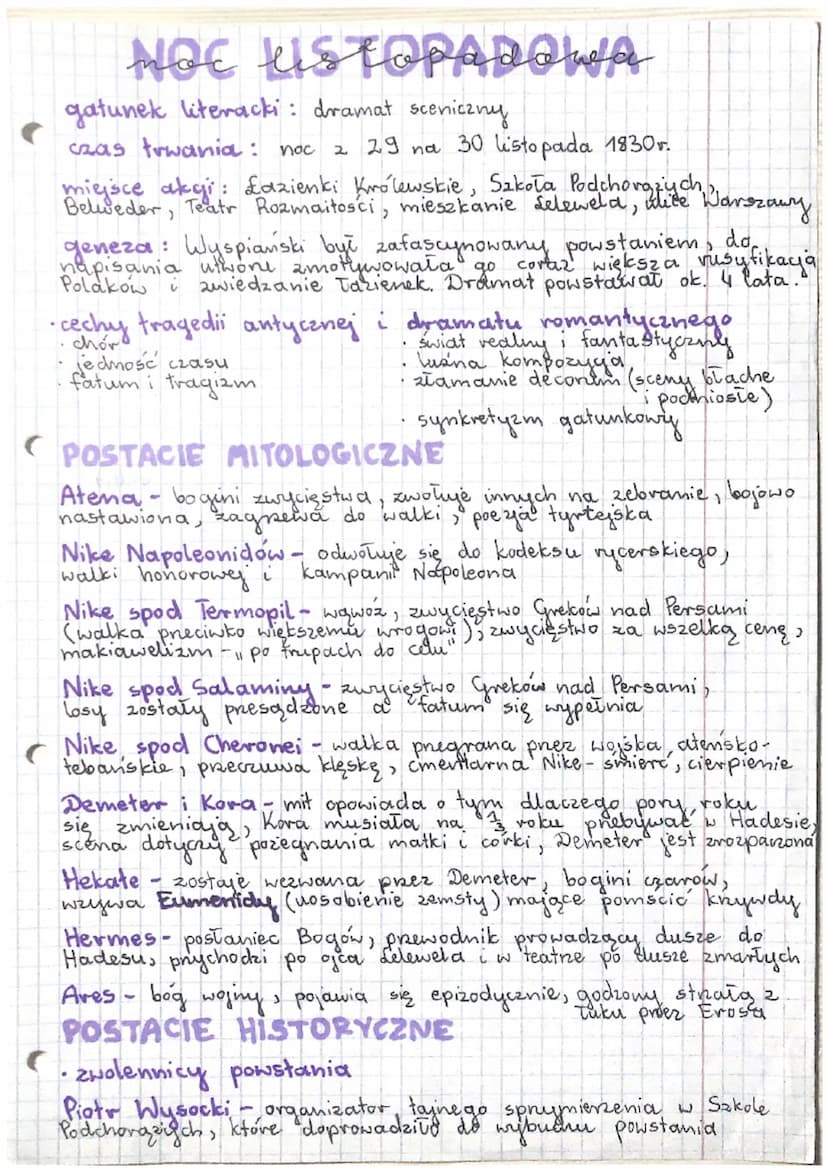 NOC LISTOPADOWA
gatunek literacki: dramat sceniczny
czas trwania: noc z 29 na 30 listopada 1830r.
miejsce akcji: Łazienki Królewskie, Szkoła Podchorążych,
Belweder, Teatr Rozmaitości, mieszkanie Lelewela, ulice Warszawy
geneza: Wyspiański był zafascynowany powstaniem, do
napisania utworu zmotywowała go coraz większa rusyfikacja
Polaków i zwiedzanie Łazienek. Dramat powstawał ok. 4 lata.
· cechy tragedii antycznej i dramatu romantycznego
· chór
· jedność czasu
· fatum i tragizm
· świat realny i fantastyczny
· luźna kompozycja
· złamanie decorum (sceny błache
i podniosłe)
· synkretyzm gatunkowy
POSTACIE MITOLOGICZNE
Atena - bogini zwycięstwa, zwołuje innych na zebranie, bojowo
nastawiona, zagrzewa do walki, poezja tyrtejska
Nike Napoleonidów - odwołuje się do kodeksu rycerskiego,
walki honorowej i kampanii Napoleona
Nike spod Termopil - wąwóz, zwycięstwo Greków nad Persami
(walka przeciwko większemu wrogowi), zwycięstwo za wszelką cenę,
makiawelizm - „po trupach do celu"
Nike spod Salaminy - zwycięstwo Greków nad Persami,
losy zostały przesądzone a fatum się wypełnia
Nike spod Cheronei - walka przegrana przez wojska ateńsko-
tebańskie, przeczuwa klęskę, cmentarna Nike - śmierć, cierpienie
Demeter i Kora - mit opowiada o tym dlaczego pory roku
się zmieniają, Kora musiała na ⅓ roku przebywać w Hadesie,
scena dotyczy pożegnania matki i córki, Demeter jest zrozpaczona
Hekate - zostaje wezwana przez Demeter, bogini czarów,
wzywa Eumenidy (uosobienie zemsty) mające pomścić krzywdy
Hermes - posłaniec Bogów, przewodnik prowadzący dusze do
Hadesu, przychodzi po ojca Lelewela i w teatrze po dusze zmarłych
Ares - bóg wojny, pojawia się epizodycznie, godzony strzałą z
łuku przez Erosa
POSTACIE HISTORYCZNE
· zwolennicy powstania
Piotr Wysocki - organizator tajnego sprzymierzenia w Szkole
Podchorążych, które doprowadziło do wybuchu powstania